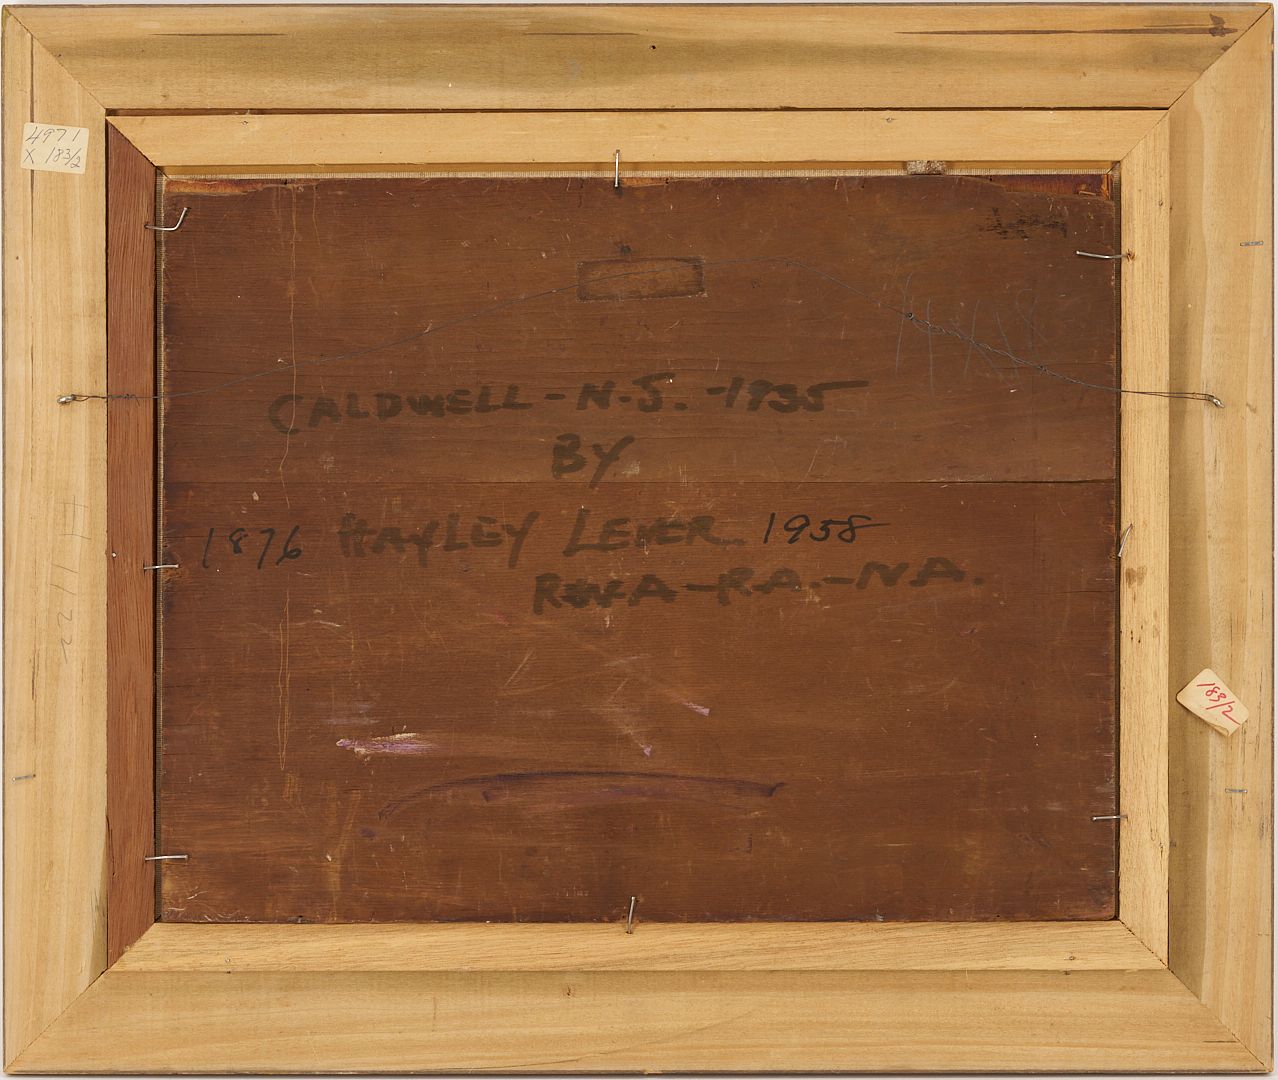 4971
X 183/2
CALDWELL - N.J. - 1935
BY
1876 HAYLEY LEVER 1958
RWA - R.A. - N.A.
183/2